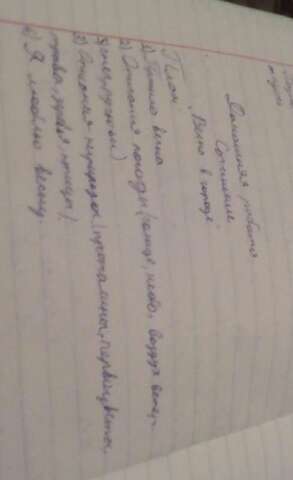 Домашняя работа.
Сочинение.
Весна в городе.
План.
1) Пришла весна
2) Описания погоды (солнце, небо, воздух ветер,
3) Описания природы (проталины, первоцветы,
трава, деревья, птицы).
4) Я люблю весну.